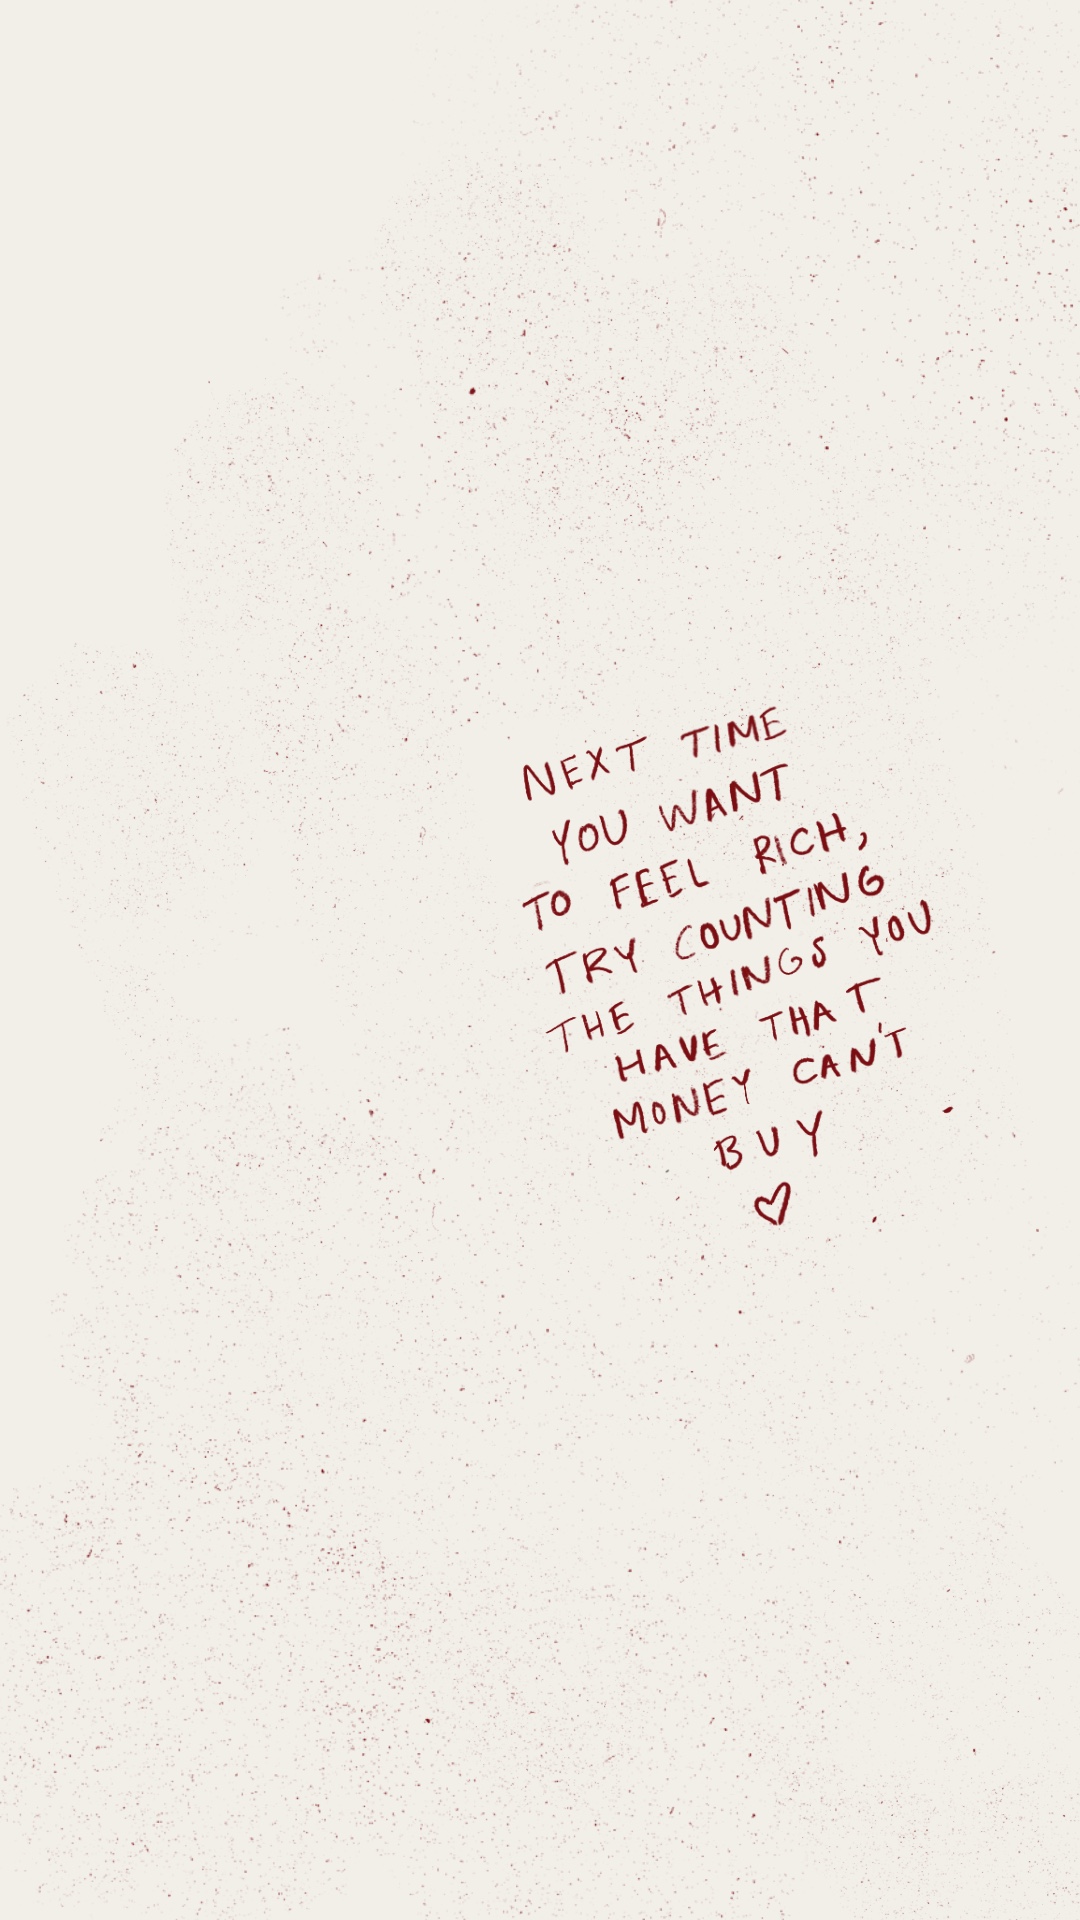 NEXT TIME
YOU WANT
TO FEEL RICH,
TRY COUNTING
THE THINGS YOU
HAVE THAT
MONEY CAN'T
BUY